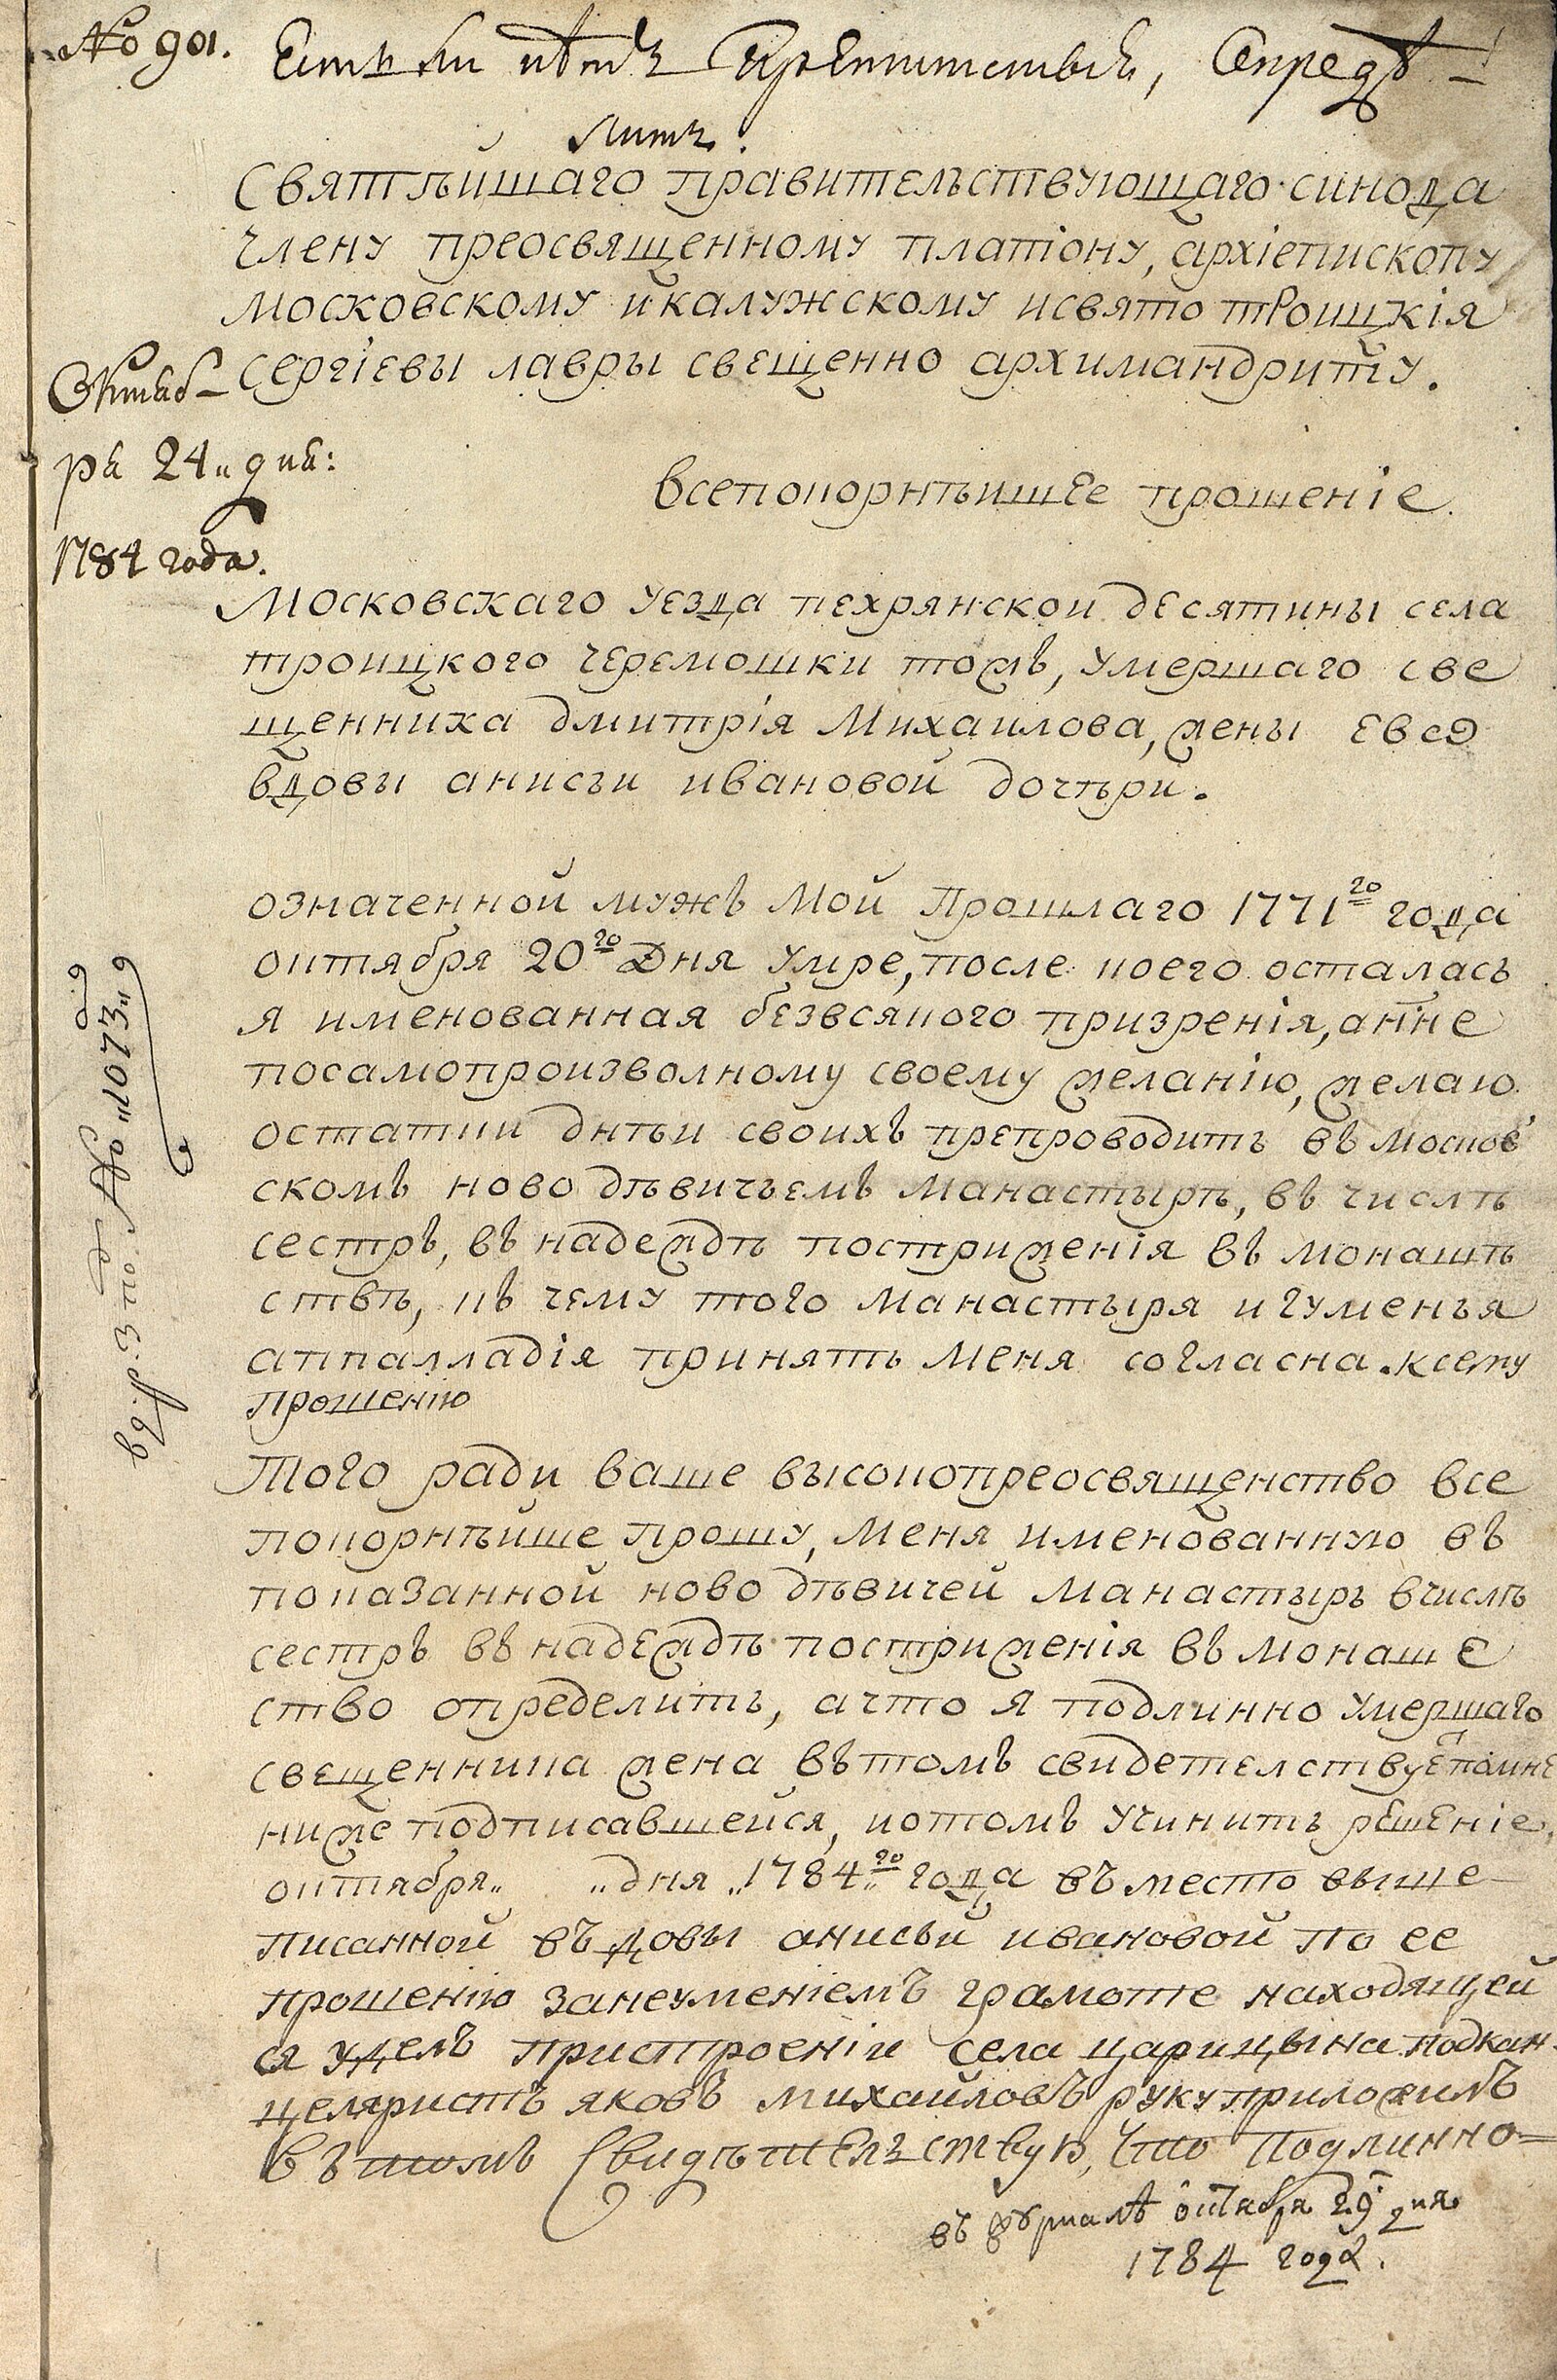 № 901.
Естьли нѣтъ препятствия, Опредѣ-
лить.
Святѣйшаго правительствующаго синода
члену преосвященному платіону, архіепископу
московскому и калужскому и свято троицкія
сергіевы лавры свещенно архимандриту.
Октяб-
ря 24 дня:
1784 года.
всепокорнѣишее прошеніе.
Московскаго уезда пехрянской десятины села
троицкого черемошки тожъ, умершаго све
щенника дмитрія Михаилова, жены ево
вдовы анисьи ивановой дочѣри.
означенной мужъ мой прошлаго 1771го года
октября 20го дня умре, после коего осталась
я именованная безвсякого призренія, а нне
посамопроизволному своему желанію, желаю
остатки днѣи своихъ препроводить въ москов
скомъ ново дѣвичьемъ манастырѣ, въ числѣ
сестръ, въ надеждѣ постриженія въ монашѣ
ствѣ, къ чему того манастыря игуменья
аппалладія принять меня согласна. к сему
прошенію
Того ради ваше высокопреосвященство все
покорнѣйше прошу, меня именованную въ
показанной ново дѣвичей манастырь вчислѣ
сестръ въ надеждѣ постриженія въ монаше
ство определить, а что я подлинно умершаго
свещенника жена въ томъ свидетелствует поине
ниже подписавшейся, и о томъ учинить решеніе,
октября „ „ дня „ 1784го года въместо выше
писанной въдовы анисьи ивановой по ее
прошенію занеуменіемъ грамоте находящей
ся уделъ пристроеніи села царицына подкан-
целяристъ яковъ михаиловъ руку приложилъ
Въ томъ Свидѣтельствую, что Подлинно=
въ журналѣ октября 29 дня
1784 года.
вд. р. 3 по № „1073„